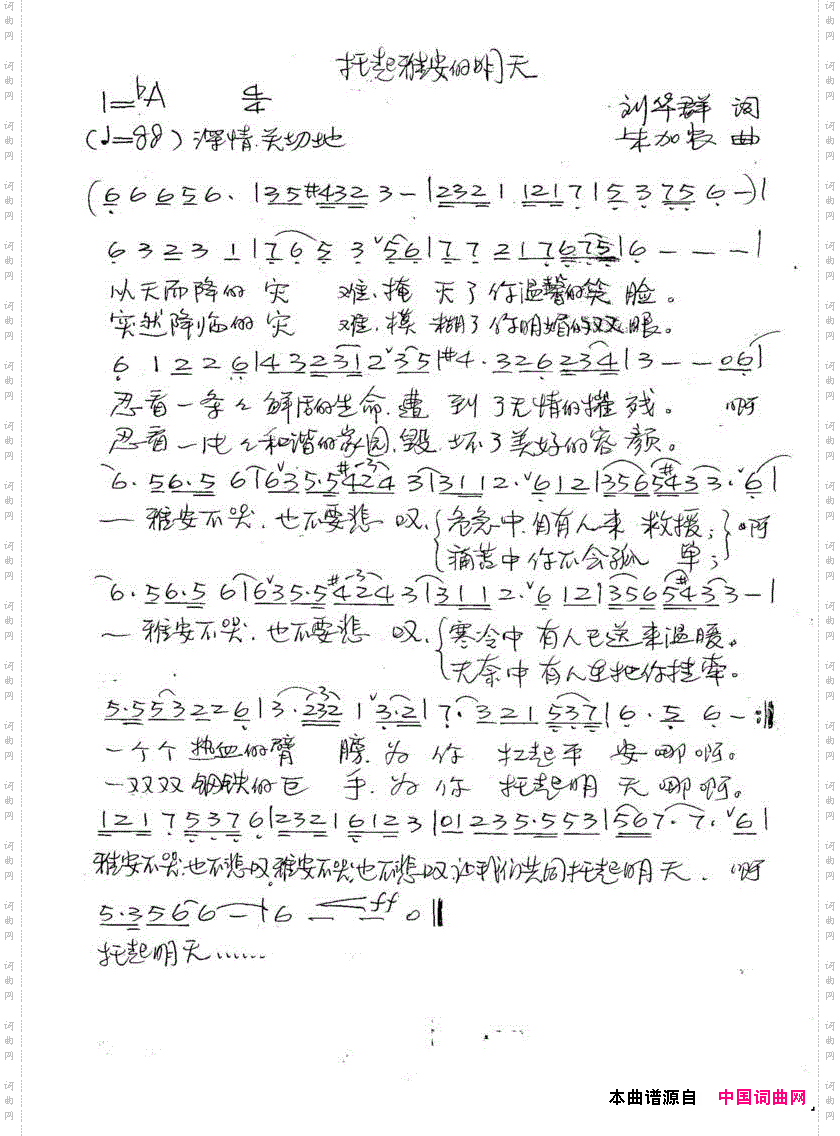 托起雅安的明天
1=♭A 4/4
刘华群 词
(♩=88) 深情、关切地
朱加农 曲
(6 6 6 5 6· | 3 5 #4 3 2 3 - | 2 3 2 1 1 2 1 7 | 5 3 7 5 6 -) |
6 3 2 3 1 | 7 6 5 3 ˅5 6 | 7 7 2 1 7 6 7 5 | 6 - - - |
从天而降的灾 难、掩 灭了你温馨的笑 脸。
突然降临的灾 难、模 糊了你明媚的双 眼。
6 1 2 2 6 | 4 3 2 3 1 2 ˅3 5 | #4· 3 2 6 2 3 4 | 3 - - 0 6 |
忍看一条々鲜活的生命、遭 到了无情的摧 残。 啊
忍看一片々和谐的家园、毁 坏了美好的容 颜。
6· 5 6· 5 6 | 6 ˅3 5· 5 #4 2 4 3 | 3 1 1 2· ˅6 1 2 | 3 5 6 5 #4 3 3· ˅6 |
— 雅安不哭、也不要悲 叹、{危急中自有人来 救援；} 啊
{痛苦中你不会孤 单；}
6· 5 6· 5 6 | 6 ˅3 5· 5 #4 2 4 3 | 3 1 1 2· ˅6 1 2 | 3 5 6 5 #4 3 3 - |
— 雅安不哭、也不要悲 叹、{寒冷中有人已送来温暖。
{无奈中有人里把你挂牵。
5· 5 5 3 2 2 6 | 3· 2 3 2 1 ˅3· 2 | 7· 3 2 1 5 3 7 | 6· 5 6 - :‖
一个个热血的臂 膀、为 你 扛起平 安哪啊。
一双双钢铁的巨 手、为 你 托起明 天哪啊。
1 2 1 7 5 3 7 6 | 2 3 2 1 6 1 2 3 | 0 1 2 3 5· 5 5 3 | 5 6 7· 7· ˅6 |
雅安不哭、也不悲叹、雅安不哭、也不悲叹、让我们共同托起明天、 啊
5· 3 5 6 6 - | 6 - - 0 ‖ ff
托起明天……
本曲谱源自 中国词曲网
词曲网